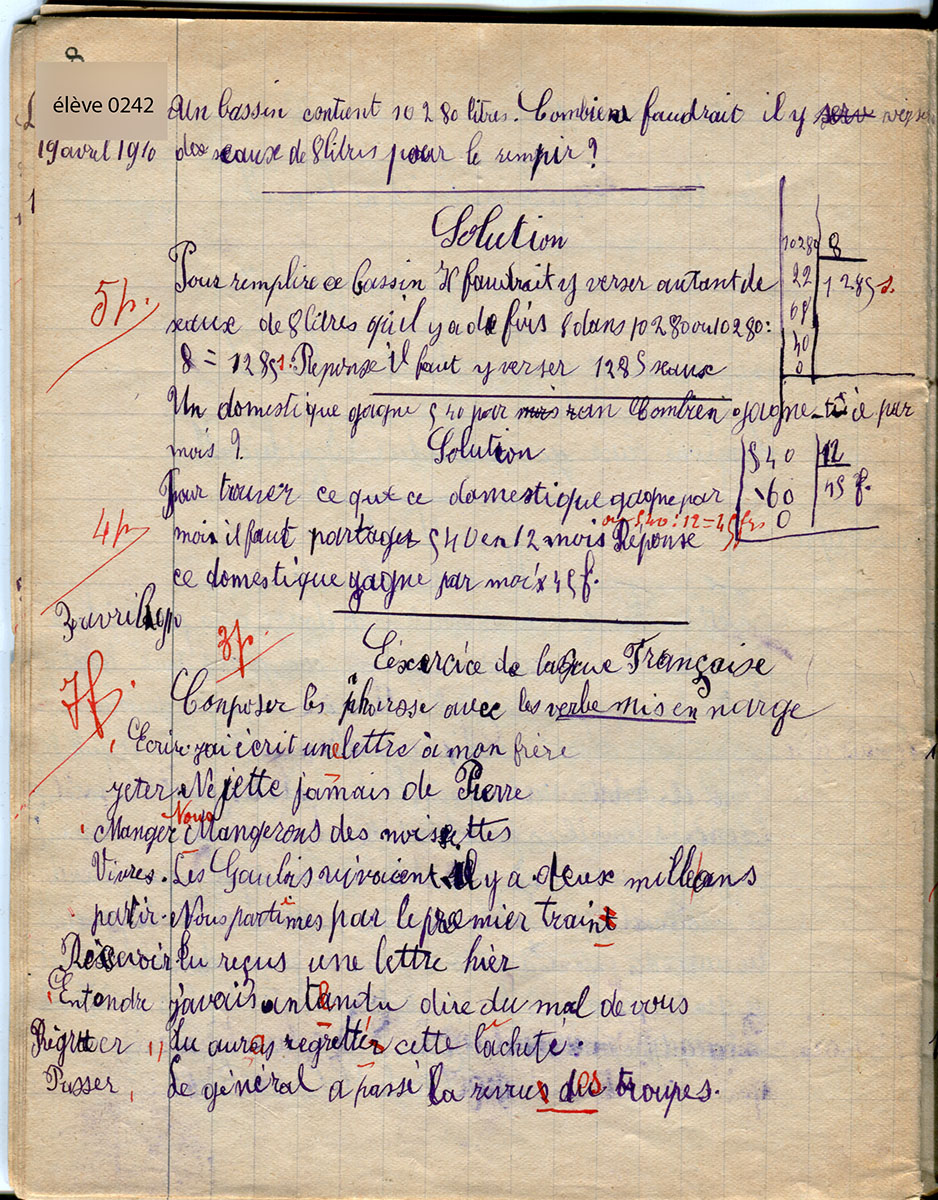 8
élève 0242
Un bassin contient 10280 litres. Combien faudrait il y serv verser
19 avril 1910 des seaux de 8 litres pour le rempir ?
Solution
10280 8
22 1285 s.
68
40
0
Pour remplire ce bassin Il faudrait y verser autant de
5p. seaux de 8 litres qu'il y a de fois 8 dans 10280 ou 10280 :
8 = 1285 s. Reponse il faut y verser 1285 seaux
Un domestique gagne 540 par mois ran Combien gagne-t-il par
mois ? Solution
540 12
60 45 f.
0
Pour trouver ce que ce domestique gagne par
ou 540 : 12 = 45 frs
4p mois il faut partager 540 en 12 mois Réponse
ce domestique gagne par mois 45 f.
avril 1910
3p.
L'éxercice de langue Française
7p.
Composer les phrase avec les verbe mis en marge
Ecrire. j'ai écrit une lettre à mon frère
jeter Ne jette jamais de Pierre
Nous
Manger Mangerons des noisettes
Vivres. Les Gaulois vivaient il y a deux mille ans
partir. Nous partîmes par le premier traine
Resevoir tu reçus une lettre hier
Entendre j'avais antandu dire du mal de vous
Régretter tu auras regretter cette lâcheté.
Passer Le général a passé la revues des troupes.